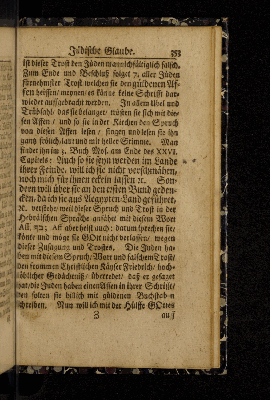 Jüdische Glaube. 353
ist dieser Trost den Jüden mannichfältiglich falsch.
Zum Ende und Beschluß folget 7. aller Jüden
fürnehmster Trost welchen sie den güldenen Af-
fen heissen/ meynen es könne keine Schrift dar-
wieder aufgebracht werden. In allem Ubel und
Trübsahl/ das sie belanget/ trösten sie sich mit die-
sen Affen / und so sie in der Kirchen den Spruch
von diesen Affen lesen / singen und lesen sie ihn
gantz frölich/ laut und mit heller Stimme. Man
findet ihn im 3. Buch Mos. am Ende des XXVI.
Capitels: Auch so sie seyn werden im Lande
ihrer Feinde, will ich sie nicht verschmähen,
noch mich für ihnen eckeln lassen ꝛc. Son-
dern will über sie an den ersten Bund geden-
cken, da ich sie aus Aegypten-Land geführet,
ꝛc. verstehe weil dieser Spruch und Trost in der
Hebräischen Sprache anfähet mit diesem Wort
Aff. aber heist auch: darum sprechen sie/
könte und möge sie GOtt nicht verlassen/ wegen
dieser Zusagung und Trostes. Die Juden ha-
ben mit diesem Spruch/ Wort und falschem Trost/
den frommen Christlichen Käyser Friedrich/ hoch-
löblicher Gedächtniß/ überredet/ daß er gesaget
hat/ die Juden haben einen Affen in ihrer Schrift/
den solten sie billich mit güldenen Buchstaben
schreiben. Nun will ich mit der Hülffe GOttes
Z auf